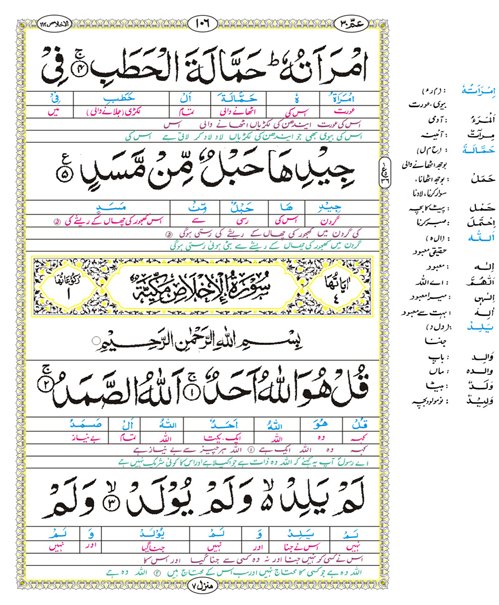 الاخلاص ۱۱۲ ۱۰۶ عمّ ۳۰
امْرَاَتُهٗ ؕ حَمَّالَةَ الْحَطَبِ ۚ﴿۴﴾ فِیْ
امْرَاَةُ هٗ حَمَّالَةَ الْ حَطَبِ فِیْ
عورت اس کی اٹھانے والی تمام لکڑی (جلانے والی) میں
اس کی عورت ایندھن کی لکڑیاں اٹھانے والی اس کی
اس کی بیوی بھی جو ایندھن کی لکڑیاں لاد لاد کر لاتی ہے
جِیْدِهَا حَبْلٌ مِّنْ مَّسَدٍ ﴿۵﴾
جِیْدِ هَا حَبْلٌ مِّنْ مَسَدٍ
گردن اس کی رسی سے اس کھجور کی چھال کے ریشے کی
کی گردن میں کھجور کی چھال کے ریشے کی رسی ہوگی
گردن میں کھجور کی چھال کے ریشے سے بٹی ہوئی رسی ہوگی
اٰیَاتُهَا ۴ سُوْرَةُ الْاِخْلَاصِ مَكِّیَّةٌ رُكُوْعَاتُهَا ۱
بِسْمِ اللّٰهِ الرَّحْمٰنِ الرَّحِیْمِ
قُلْ هُوَ اللّٰهُ اَحَدٌ ۚ﴿۱﴾ اَللّٰهُ الصَّمَدُ ۚ﴿۲﴾
قُلْ هُوَ اللّٰهُ اَحَدٌ اَللّٰهُ الْ صَمَدُ
کہہ وہ اللہ ایک۔ یکتا اللہ تمام بے نیاز
کہہ وہ اللہ ایک ہے اللہ ہر چیز سے بے نیاز ہے
اے رسول آپ یہ کہئے کہ اللہ وہ ذات ہے جو اکیلا ہے اور اس کا کوئی شریک نہیں ہے
لَمْ یَلِدْ ۙ۬ وَلَمْ یُوْلَدْ ۙ﴿۳﴾ وَلَمْ
لَمْ یَلِدْ وَ لَمْ یُوْلَدْ وَ لَمْ
نہیں اس نے جنا اور نہیں جنا گیا اور نہیں
اس نے کسی کو نہیں جنا اور نہ وہ کسی سے جنا گیا اور اس کا
اللہ وہ ہے جو کسی کا محتاج نہیں اور سب اس کے محتاج ہیں
منزل ۷
اِمْرَأَتُهٗ : (م ر ء)
بیوی، عورت
اَمْرُءٌ : آدمی
: آئینہ
حَمَّالَةَ : (ح م ل)
بوجھ اٹھانے والی
حَمَلَ : بوجھ اٹھانا،
سوار کرنا، لادنا
حَمْل : پیٹ کا بچہ
: صبر کرنا
اَللّٰهُ : (ا ل ہ)
حقیقی معبود
اِلٰه : معبود
اَللّٰهُمَّ : اے اللہ
اِلٰهِیْ : میرا معبود
: بہت سے معبود
یَلِدْ : (و ل د)
جننا
وَالِد : باپ
وَالِدَه : ماں
وَلَد : بیٹا
وَلِیْد : نومولود بچہ